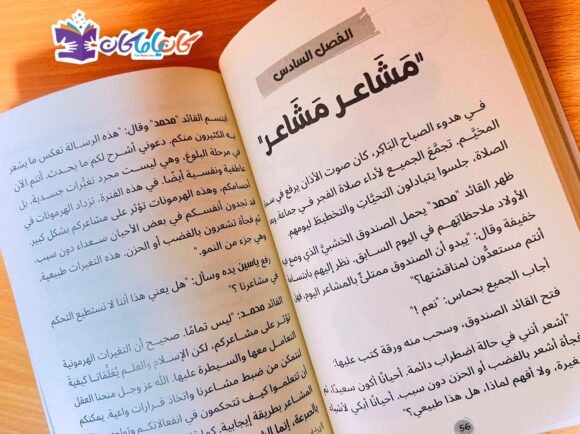 كان ياما كان
الفصل السادس
"مَشَاعر مَشَاعر"
في هدوء الصباح الباكر، كان صوت الأذان يرفع في
المخيَّم. تجمَّع الجميع لأداء صلاة الفجر في جماعة،
الصلاة، جلسوا يتبادلون التحيَّات والتخطيط ليومهم.
ظهر القائد "محمد" يحمل الصندوق الخشبيَّ الذي وضع
الأولاد ملاحظاتهم في اليوم السابق. نظر إليهم بابتسامة
خفيفة وقال: "يبدو أن الصندوق ممتلئٌ بالمشاعر اليوم،
أنتم مستعدُّون لمناقشتها؟"
أجاب الجميع بحماس: "نعم !"
فتح القائد الصندوق، وسحب منه ورقة كتب عليها:
"أشعر أنني في حالة اضطراب دائمة. أحيانًا أكون سعيدًا، ثم
فجأة أشعر بالغضب أو الحزن دون سبب. أحيانًا أبكي لأشياء
صغيرة، ولا أفهم لماذا، هل هذا طبيعي؟"
56
ابتسم القائد "محمد" وقال: "هذه الرسالة تعكس ما يشعر
به الكثيرون منكم. دعوني أشرح لكم ما يحدث. أنتم الآن
في مرحلة البلوغ، وهي ليست مجرد تغيُّرات جسدية، بل
عاطفية ونفسية أيضًا. في هذه الفترة، تزداد الهرمونات في
أجسامكم، وهذه الهرمونات تؤثر على مشاعركم بشكل كبير.
قد تجدون أنفسكم في بعض الأحيان سعداء دون سبب،
ثم فجأة تشعرون بالغضب أو الحزن. هذه التغيرات طبيعية،
وهي جزء من النمو."
رفع ياسين يده وسأل: "هل يعني هذا أننا لا نستطيع التحكم
في مشاعرنا ؟"
القائد محمد: "ليس تمامًا. صحيح أن التغيرات الهرمونية
تؤثر على مشاعركم، لكن الإسلام والعلم يُعَلِّمَانا كيفية
التعامل معها والسيطرة عليها. الله عز وجل منحنا العقل
لنتمكن من ضبط مشاعرنا واتخاذ قرارات واعية. يمكنكم
أن تتعلموا كيف تتحكمون في انفعالاتكم
المشاعر بطريقة إيجابية.